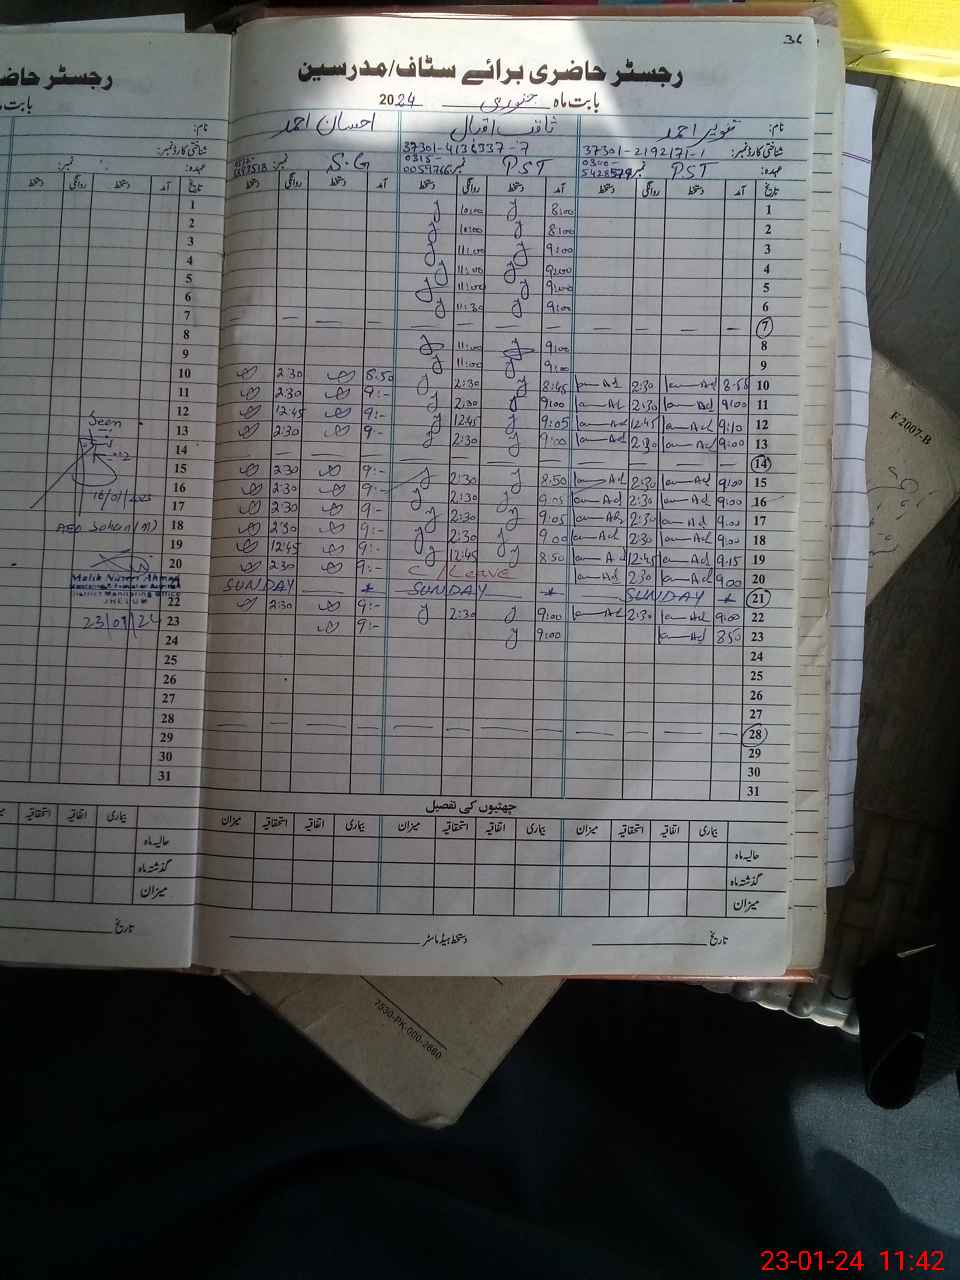 36
رجسٹر حاضری برائے سٹاف/مدرسین
بابت ماہ جنوری 2024
نام: تنویر احمد ثاقب اقبال احسان احمد
شناختی کارڈ نمبر: 37301-2192171-1 37301-4136337-7
عہدہ: PST نمبر 0300-5428579 PST نمبر 0315-0059766 S.G نمبر:
تاریخ آمد دستخط روانگی دستخط آمد دستخط روانگی دستخط آمد دستخط روانگی دستخط
1 8:00 10:00
2 8:00 10:00
3 9:00 11:00
4 9:00 11:00
5 9:00 11:00
6 9:00 11:30
7 — — — — — — — — — — — —
8 9:00 11:00
9 9:00 11:00
10 8:55 2:30 8:45 2:30 8:50 2:30
11 9:00 2:30 9:00 2:30 9:- 2:30
12 9:10 12:45 9:05 12:45 9:- 12:45
13 9:00 2:30 9:00 2:30 9:- 2:30
14 — — — — — — — — — — — —
15 9:00 2:30 8:50 2:30 9:- 2:30
16 9:00 2:30 9:05 2:30 9:- 2:30
17 9:00 2:30 9:05 2:30 9:- 2:30
18 9:00 2:30 9:00 2:30 9:- 2:30
19 9:15 12:45 8:50 12:45 9:- 12:45
20 9:00 2:30 C/Leave 9:- 2:30
21 * SUNDAY * SUNDAY * SUNDAY
22 9:00 2:30 9:00 2:30 9:- 2:30
23 8:50 9:00 9:-
24
25
26
27
28 — — — — — — — — — — — —
29
30
31
چھٹیوں کی تفصیل
بیماری اتفاقیہ استحقاقیہ میزان بیماری اتفاقیہ استحقاقیہ میزان بیماری اتفاقیہ استحقاقیہ میزان
حالیہ ماہ
گذشتہ ماہ
میزان
تاریخ دستخط ہیڈ ماسٹر
رجسٹر حاض
بابت ما
نام:
شناختی کارڈ نمبر:
عہدہ: نمبر:
تاریخ آمد دستخط روانگی دستخط
1
2
3
4
5
6
7
8
9
10
11
12
13
14
15
16
17
18
19
20
22
23
24
25
26
27
28
29
30
31
Seen
AEO
Malik
District Monitoring Officer
JHELUM
23/01/24
بیماری اتفاقیہ استحقاقیہ
حالیہ ماہ
گذشتہ ماہ
میزان
تاریخ
F 2007-B
7530-PK-000-2660
23-01-24 11:42